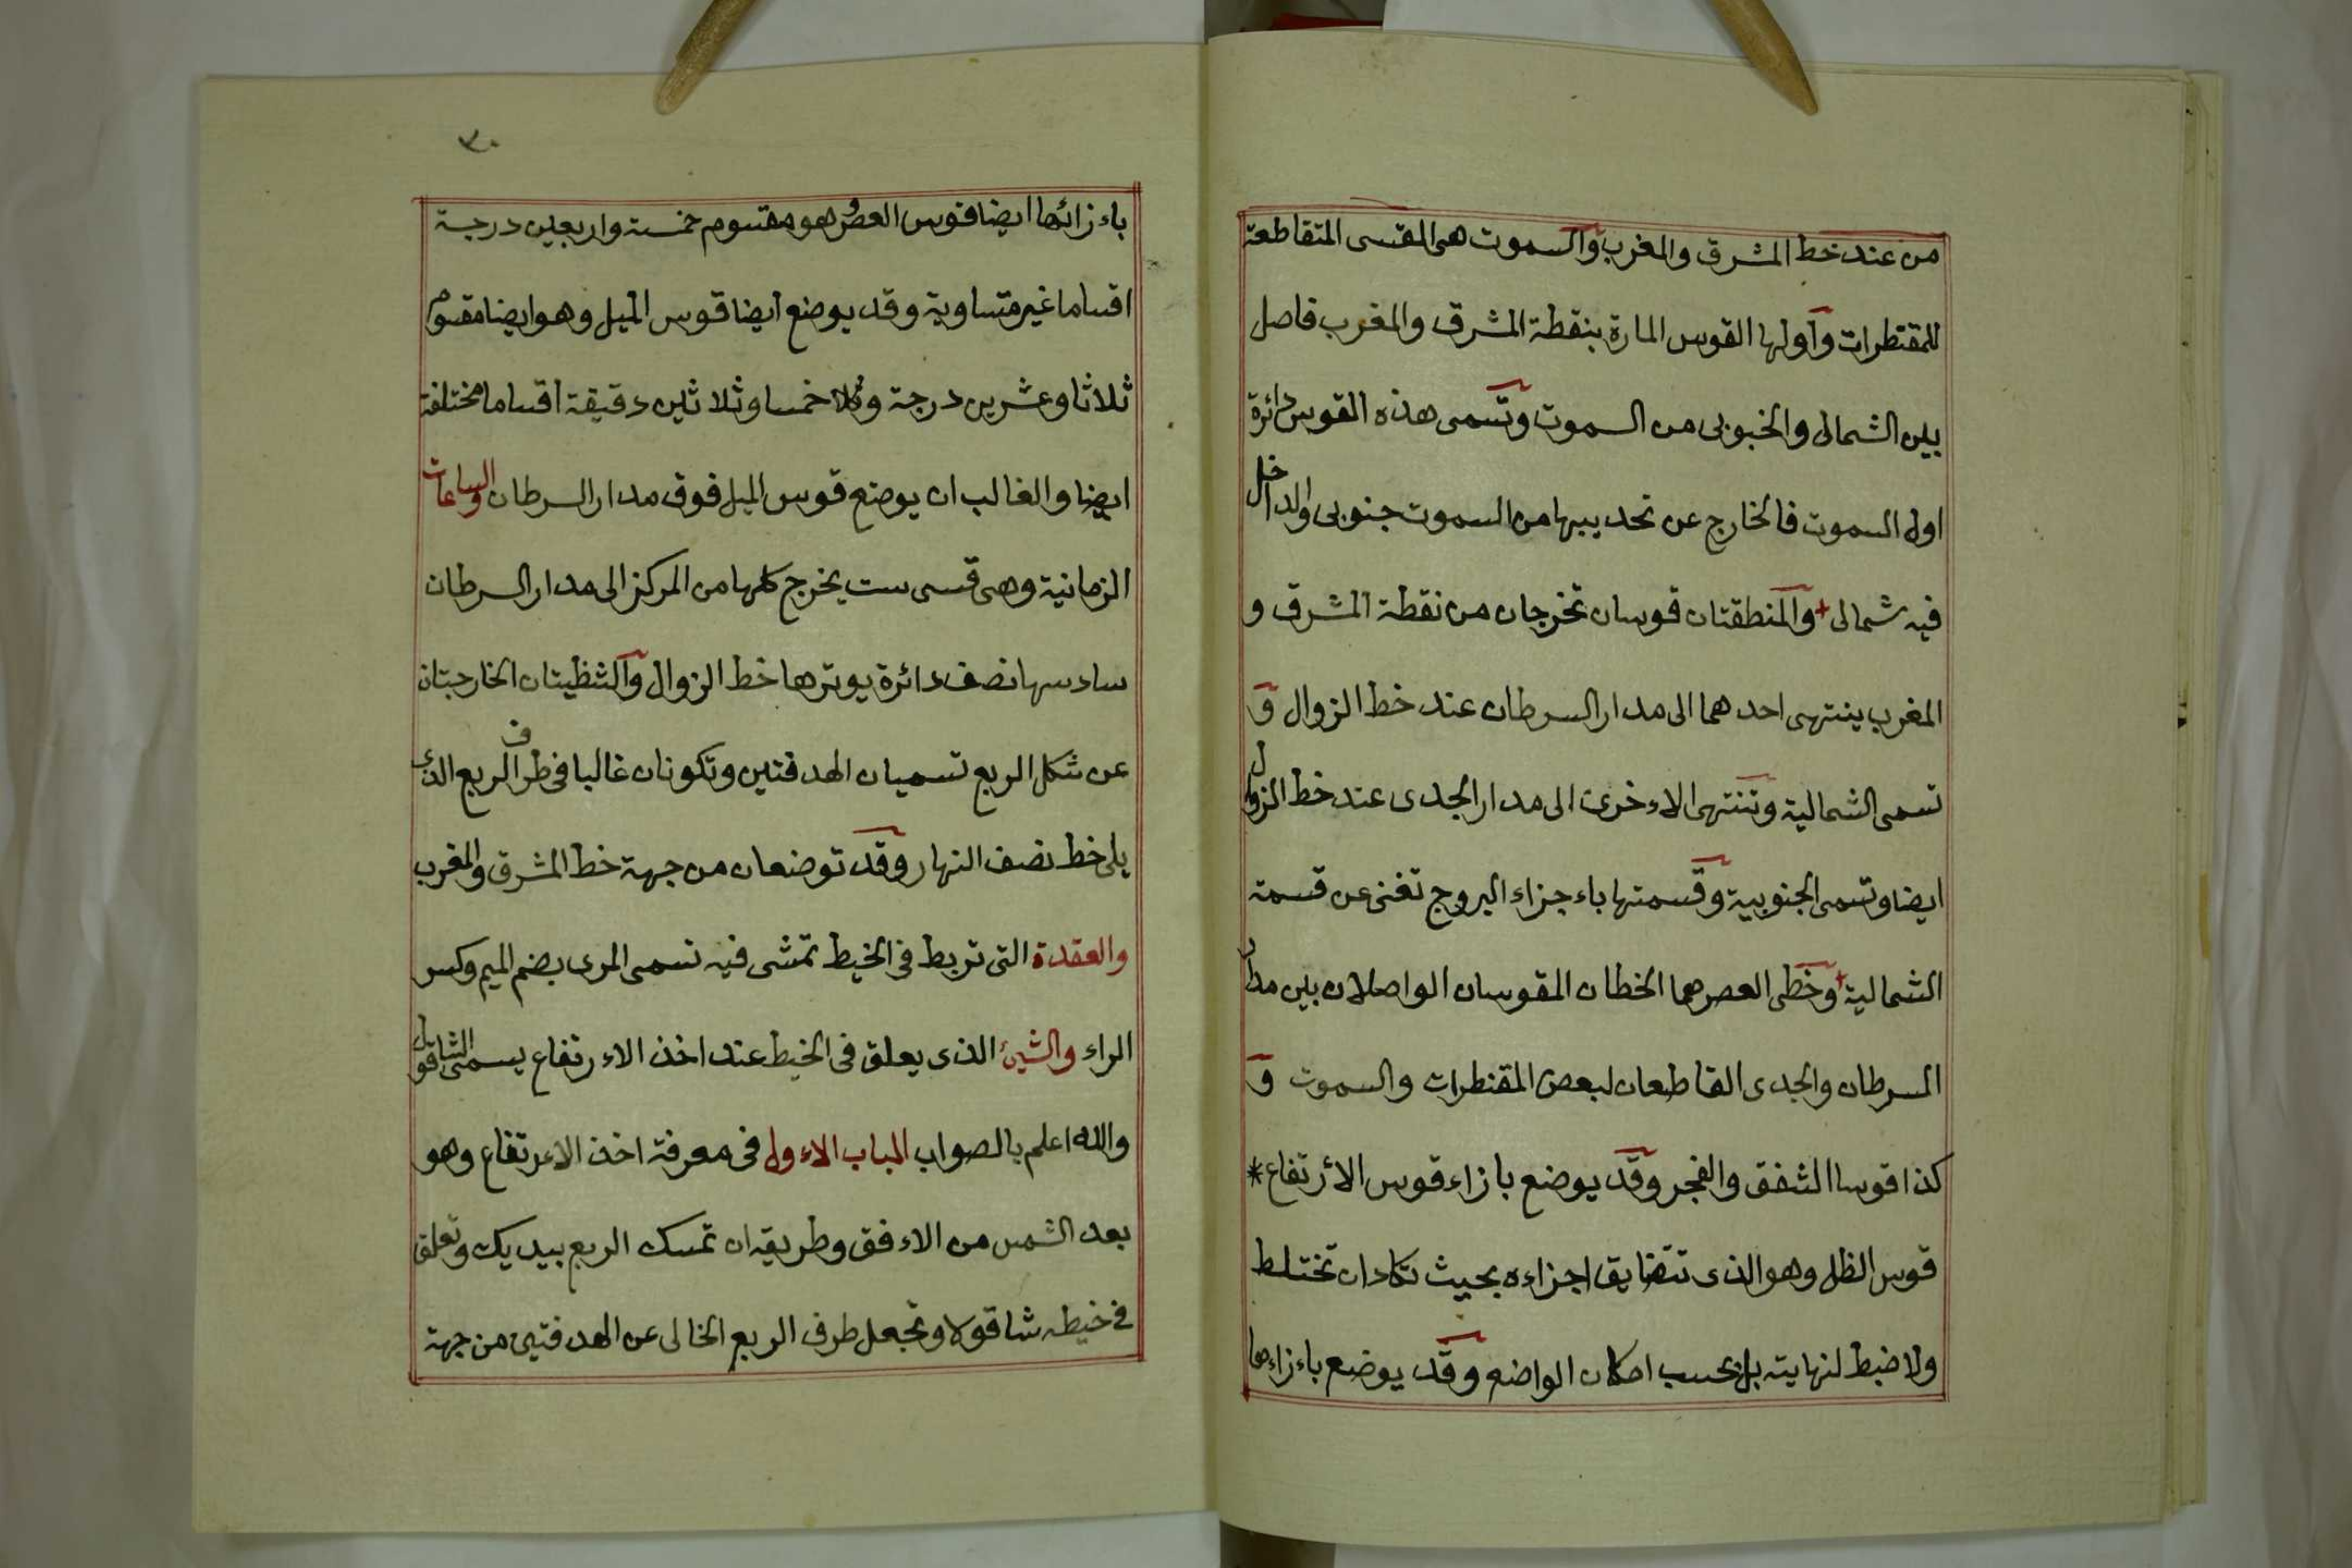 من عند خط المشرق والمغرب والسموت هى القسى المتقاطعة
للمقنطرات واولها القوس المارة بنقطة المشرق والمغرب فاصل
بين الشمالى والجنوبى من السموت وتسمى هذه القوس دائرة
اول السموت فالخارج عن تحديبها من السموت جنوبى والداخل
فيه شمالى + والمنطقتان قوسان تخرجان من نقطة المشرق و
المغرب ينتهى احدهما الى مدار السرطان عند خط الزوال و
تسمى الشمالية وتنتهى الاءخرى الى مدار الجدى عند خط الزوال
ايضا وتسمى الجنوبية وقسمتها باءجزاء البروج تغنى عن قسمة
الشمالية + وخطى العصر هما الخطان المقوسان الواصلان بين مدار
السرطان والجدى القاطعان لبعض المقنطرات والسموت و
كذا قوسا الشفق والفجر وقد يوضع بازاء قوس الأرتفاع *
قوس الظل وهو الذى تتضايق اجزاءه بحيث تكادان تختلط
ولا ضبط لنهايته بل بحسب امكان الواضع وقد يوضع باءزاءها
٣٠
باءزائها ايضا قوس العصر وهو مقسوم خمسة واربعين درجة
اقساما غير متساوية وقد يوضع ايضا قوس الميل وهو ايضا مقسوم
ثلاثا وعشرين درجة وكلا خمسا وثلاثين دقيقة اقساما مختلفة
ايضا والغالب ان يوضع قوس الميل فوق مدار السرطان والساعات
الزمانية وهى قسى ست يخرج كلها من المركز الى مدار السرطان
سادسها نصف دائرة يوترها خط الزوال والشظيتان الخارجتان
عن شكل الربع تسميان الهدفتين وتكونان غالبا فى طرف الربع الذى
يلى خط نصف النهار وقد توضعان من جهة خط المشرق والمغرب
والعقدة التى تربط فى الخيط تمشى فيه تسمى المرى بضم الميم وكسر
الراء والشيئ الذى يعلق فى الخيط عند اخذ الاءرتفاع يسمى الشاقول
والله اعلم بالصواب الباب الاءول فى معرفة اخذ الاءرتفاع وهو
بعد الشمس من الاءفق وطريقه ان تمسك الربع بيديك وتعلق
فى خيطه شاقولا وتجعل طرف الربع الخالى عن الهدفتين من جهة